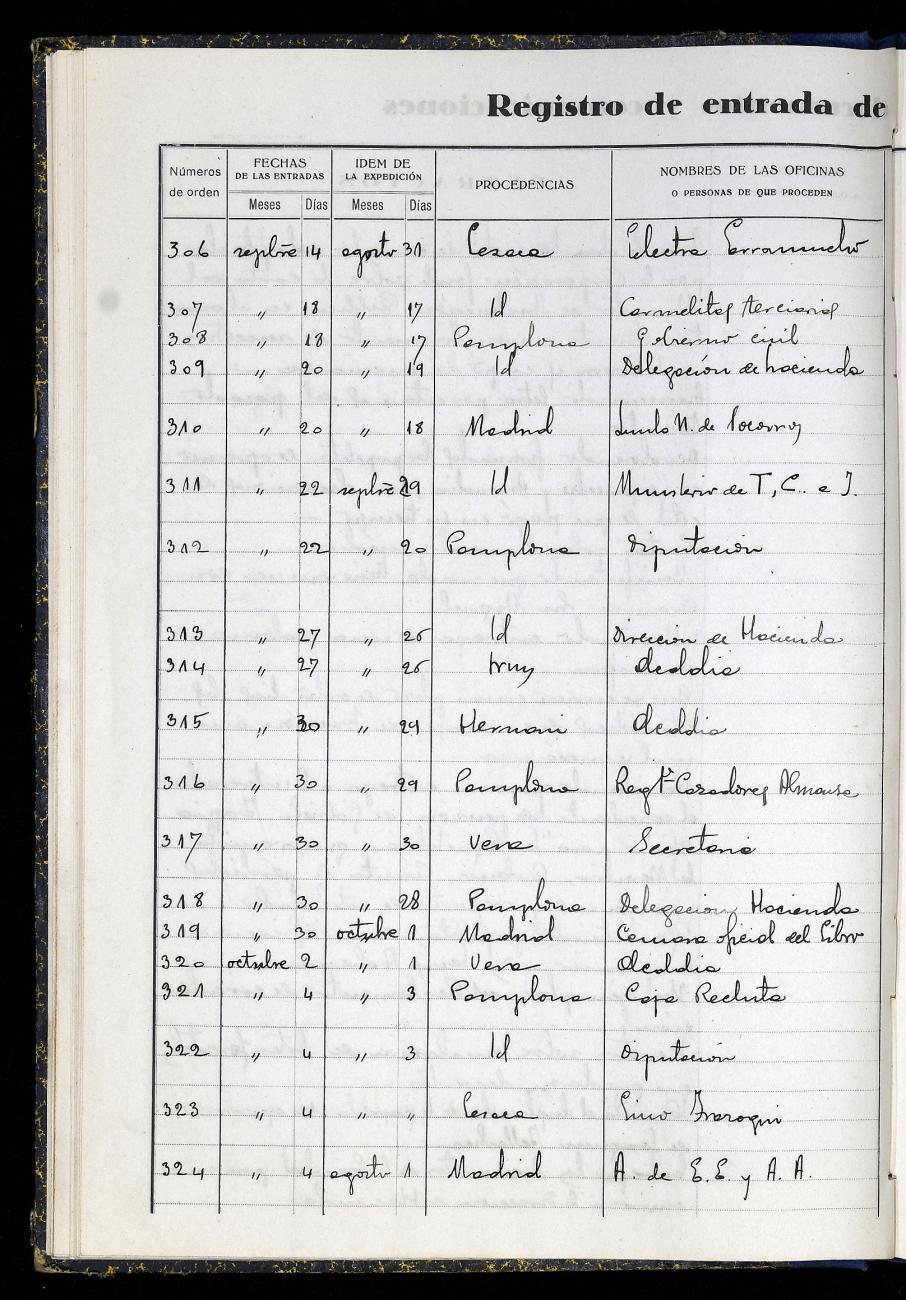 Registro de entrada de
Números de orden
FECHAS DE LAS ENTRADAS
IDEM DE LA EXPEDICIÓN
PROCEDENCIAS
NOMBRES DE LAS OFICINAS O PERSONAS DE QUE PROCEDEN
Meses Días Meses Días
306 sepbre 14 agosto 31 Lesaca Electra
307 " 18 " 17 Id Carmelitas terciarias
308 " 18 " 17 Pamplona Gobierno civil
309 " 20 " 19 Id Delegación de hacienda
310 " 20 " 18 Madrid N. de Socorros
311 " 22 sepbre 19 Id Ministerio de T, C. e I.
312 " 22 " 20 Pamplona Diputación
313 " 27 " 26 Id Dirección de Hacienda
314 " 27 " 26 Irun Alcaldia
315 " 30 " 29 Hernani Alcaldia
316 " 30 " 29 Pamplona Regto Cazadores Almansa
317 " 30 " 30 Vera Secretaria
318 " 30 " 28 Pamplona Delegacion Hacienda
319 " 30 octubre 1 Madrid Camara oficial del Libro
320 octubre 2 " 1 Vera Alcaldia
321 " 4 " 3 Pamplona Caja Recluta
322 " 4 " 3 Id Diputación
323 " 4 " " Lesaca Lino
324 " 4 agosto 1 Madrid A. de E.E. y A. A.